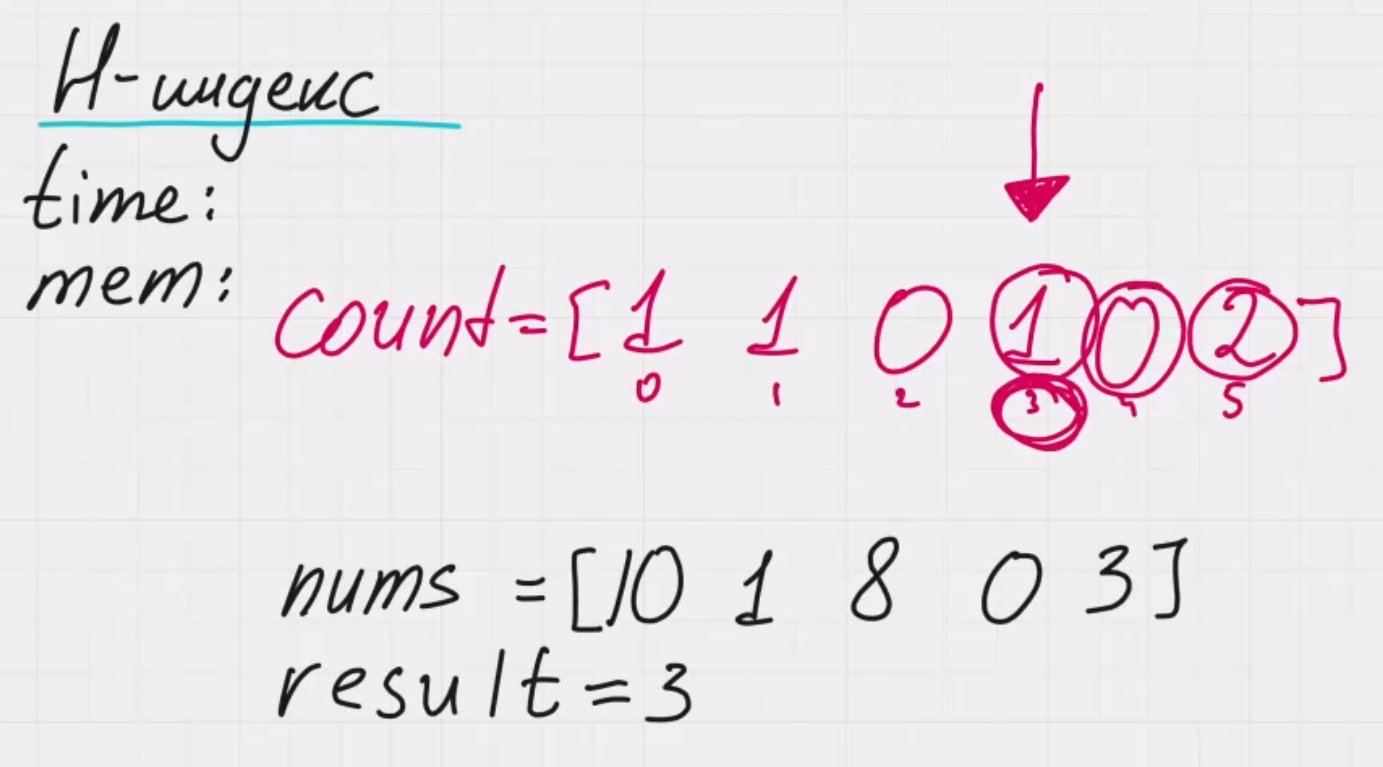 H-индекс
time:
mem:
count=[1 1 0 1 0 2]
0 1 2 3 4 5
nums =[10 1 8 0 3]
result=3